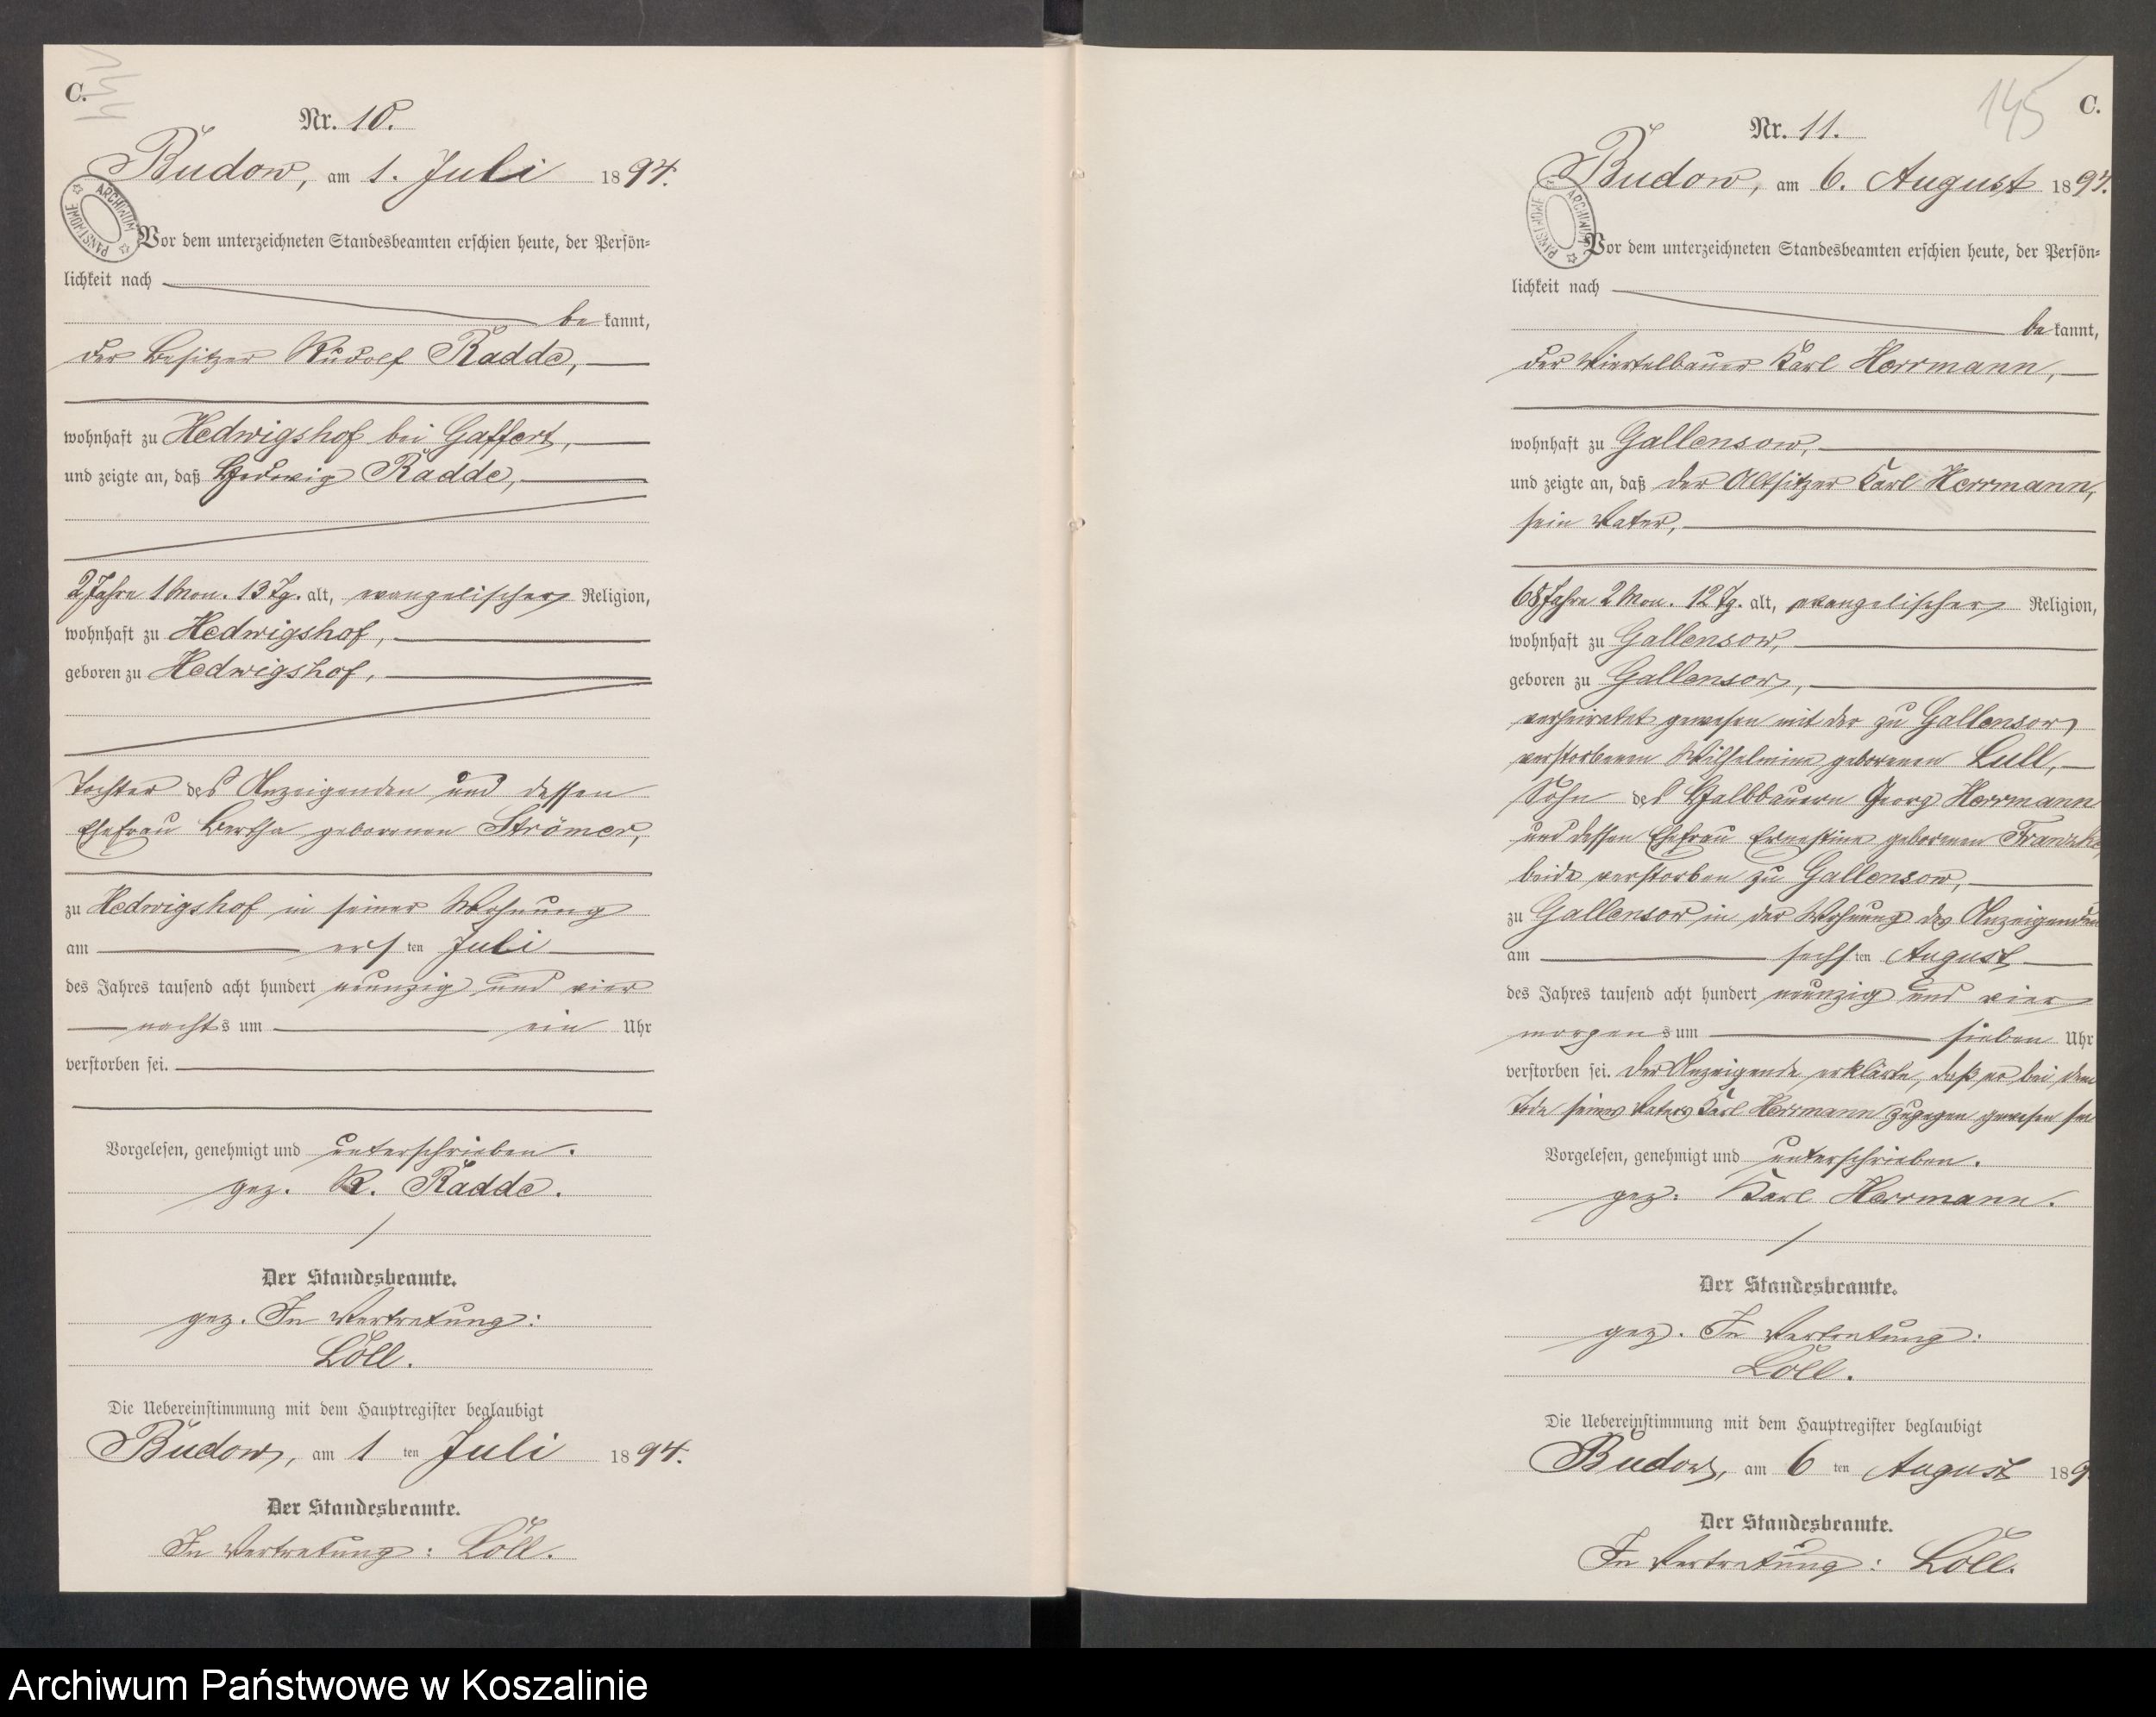 C.
Nr. 10.
Budow, am 1. Juli 1894.
ARCHIWUM PAŃSTWOWE
Vor dem unterzeichneten Standesbeamten erschien heute, der Persön-
lichkeit nach
bekannt,
der Besitzer Rudolf Radde,
wohnhaft zu Hedwigshof bei Gaffert,
und zeigte an, daß Hedwig Radde,
2 Jahre 1 Mon. 13 Tg. alt, evangelischer Religion,
wohnhaft zu Hedwigshof,
geboren zu Hedwigshof,
Tochter des Anzeigenden und dessen
Ehefrau Bertha geborenen Strömer,
zu Hedwigshof in seiner Wohnung
am ersten Juli
des Jahres tausend acht hundert neunzig und vier
nachts um ein Uhr
verstorben sei.
Vorgelesen, genehmigt und unterschrieben.
gez. R. Radde.
Der Standesbeamte.
gez. In Vertretung:
Löll.
Die Uebereinstimmung mit dem Hauptregister beglaubigt
Budow, am 1ten Juli 1894.
Der Standesbeamte.
In Vertretung: Löll.
145
C.
Nr. 11.
Budow, am 6. August 1894.
ARCHIWUM PAŃSTWOWE
Vor dem unterzeichneten Standesbeamten erschien heute, der Persön-
lichkeit nach
bekannt,
der Viertelbauer Karl Herrmann,
wohnhaft zu Gallensow,
und zeigte an, daß der Altsitzer Karl Herrmann,
sein Vater,
68 Jahre 2 Mon. 12 Tg. alt, evangelischer Religion,
wohnhaft zu Gallensow,
geboren zu Gallensow,
verheiratet gewesen mit der zu Gallensow
verstorbenen Wilhelmine geborenen Lull,
Sohn des Halbbauern Georg Herrmann
und dessen Ehefrau Ernestine geborenen Franzke
beide verstorben zu Gallensow,
zu Gallensow in der Wohnung des Anzeigenden
am sechsten August
des Jahres tausend acht hundert neunzig und vier
morgens um sieben Uhr
verstorben sei. Der Anzeigende erklärte, daß er bei dem
Tode seines Vaters Karl Herrmann zugegen gewesen sei
Vorgelesen, genehmigt und unterschrieben.
gez. Karl Herrmann.
Der Standesbeamte.
gez. In Vertretung:
Löll.
Die Uebereinstimmung mit dem Hauptregister beglaubigt
Budow, am 6ten August 189
Der Standesbeamte.
In Vertretung: Löll.
Archiwum Państwowe w Koszalinie